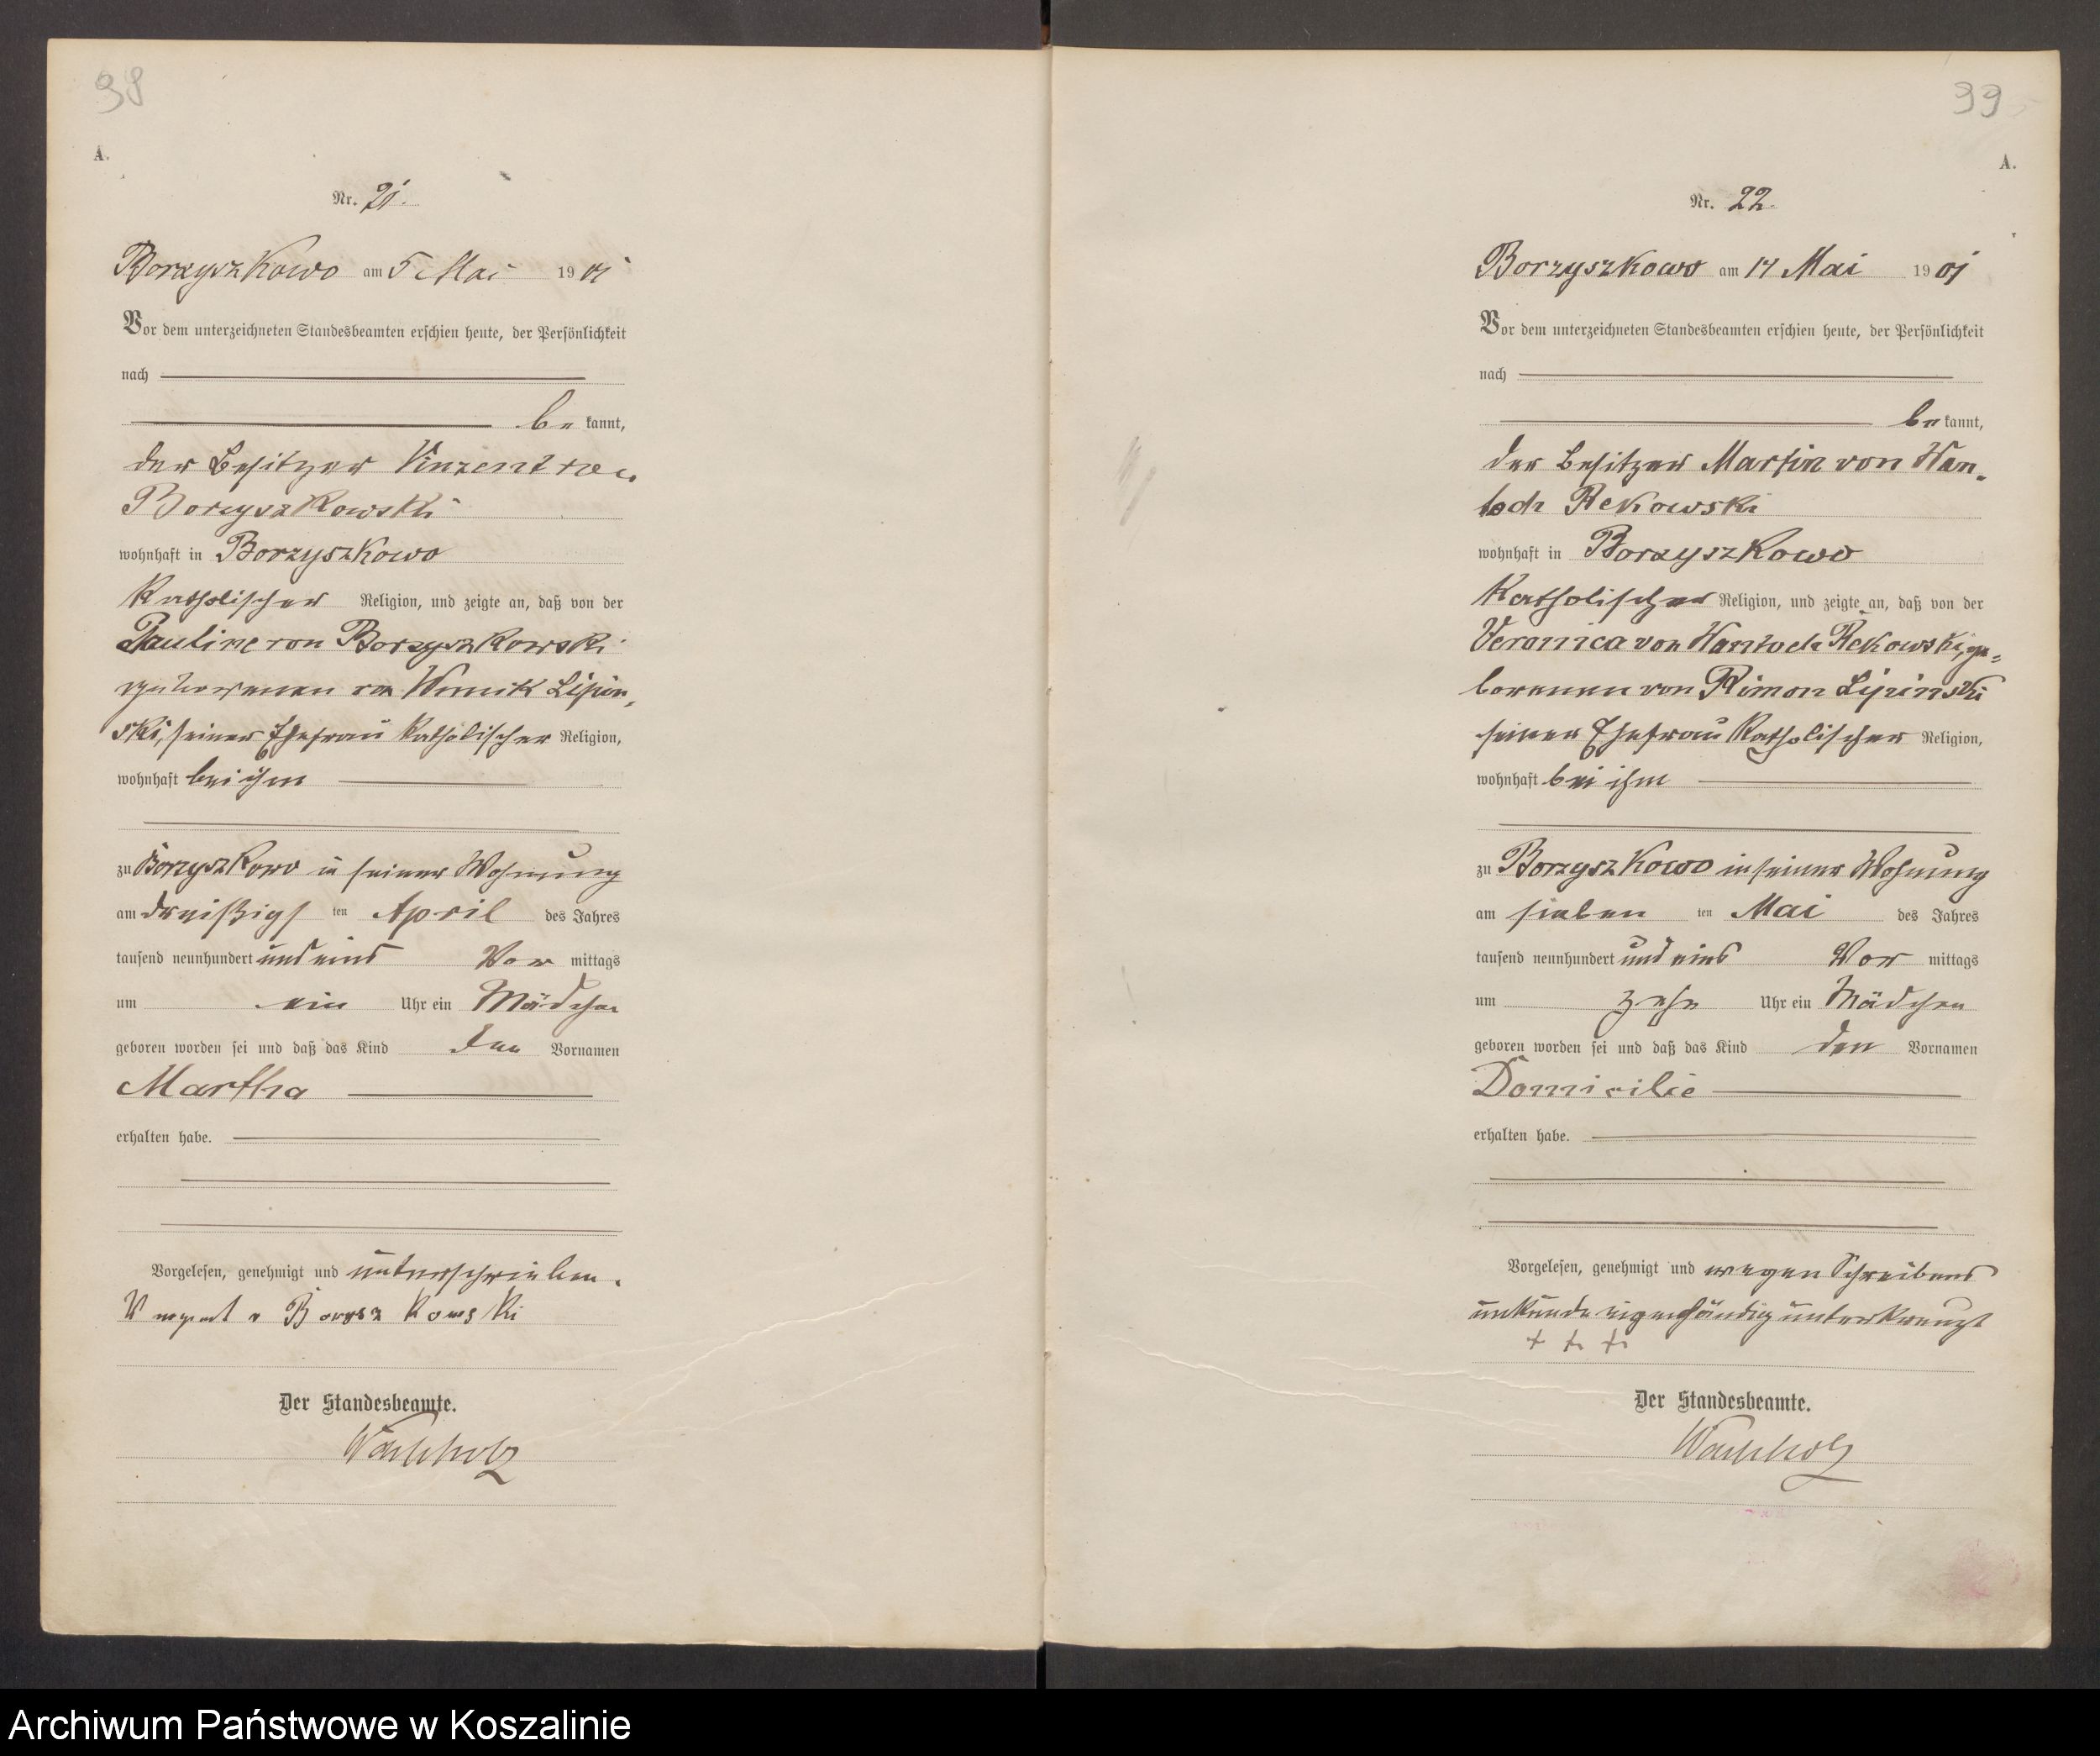 98
A.
Nr. 21.
Borzyszkowo am 5 Mai 1901
Vor dem unterzeichneten Standesbeamten erschien heute, der Persönlichkeit
nach
be kannt,
der Besitzer Vinzent von
Borzyszkowski
wohnhaft in Borzyszkowo
katholischer Religion, und zeigte an, daß von der
Pauline von Borzyszkowski
geborenen von Wnuck Lipin-
ski, seiner Ehefrau katholischer Religion,
wohnhaft bei ihm
zu Borzyszkowo in seiner Wohnung
am dreißigs ten April des Jahres
tausend neunhundert und eins Vor mittags
um ein Uhr ein Mädchen
geboren worden sei und daß das Kind den Vornamen
Martha
erhalten habe.
Vorgelesen, genehmigt und unterschrieben.
v Borzszkowski
Der Standesbeamte.
Wachholz
99
A.
Nr. 22.
Borzyszkowo am 14 Mai 1901
Vor dem unterzeichneten Standesbeamten erschien heute, der Persönlichkeit
nach
be kannt,
der Besitzer Martin von Wan-
toch Rekowski
wohnhaft in Borzyszkowo
katholischer Religion, und zeigte an, daß von der
Veronica von Wantoch Rekowski, ge-
borenen von Rimon Lipinski
seiner Ehefrau katholischer Religion,
wohnhaft bei ihm
zu Borzyszkowo in seiner Wohnung
am sieben ten Mai des Jahres
tausend neunhundert und eins Vor mittags
um zehn Uhr ein Mädchen
geboren worden sei und daß das Kind den Vornamen
Domicilie
erhalten habe.
Vorgelesen, genehmigt und wegen Schreibens
unkunde eigenhändig unterkreuzt
+ + +
Der Standesbeamte.
Wachholz
Archiwum Państwowe w Koszalinie